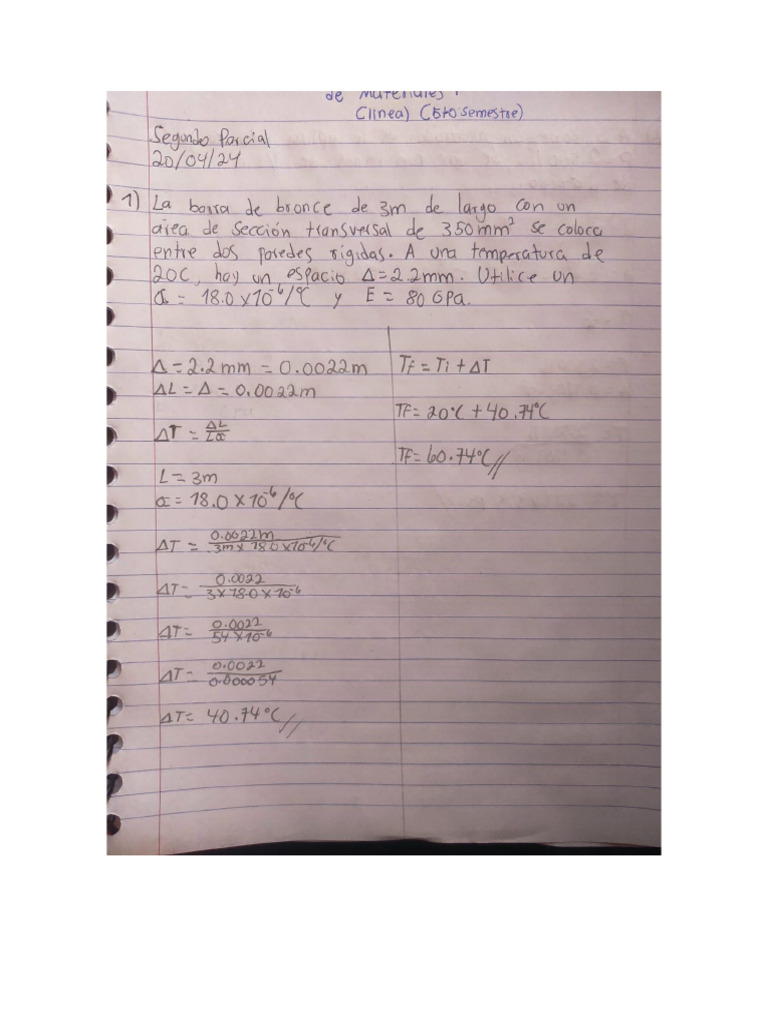 de Materiales 1
(linea) (5to Semestre)
Segundo Parcial
20/04/24
1) La barra de bronce de 3m de largo con un
área de sección transversal de 350mm² se coloca
entre dos paredes rígidas. A una temperatura de
20C, hay un espacio Δ=2.2mm. Utilice un
α = 18.0 x10⁻⁶/°C y E = 80 GPa.
Δ = 2.2mm = 0.0022m
ΔL = Δ = 0.0022m
ΔT = ΔL/Lα
L = 3m
α = 18.0 x 10⁻⁶/°C
ΔT = 0.0022m / 3m x 18.0 x10⁻⁶/°C
ΔT = 0.0022 / 3 x 18.0 x 10⁻⁶
ΔT = 0.0022 / 54 x 10⁻⁶
ΔT = 0.0022 / 0.000054
ΔT = 40.74°C//
Tf = Ti + ΔT
TF = 20°C + 40.74°C
TF = 60.74°C//